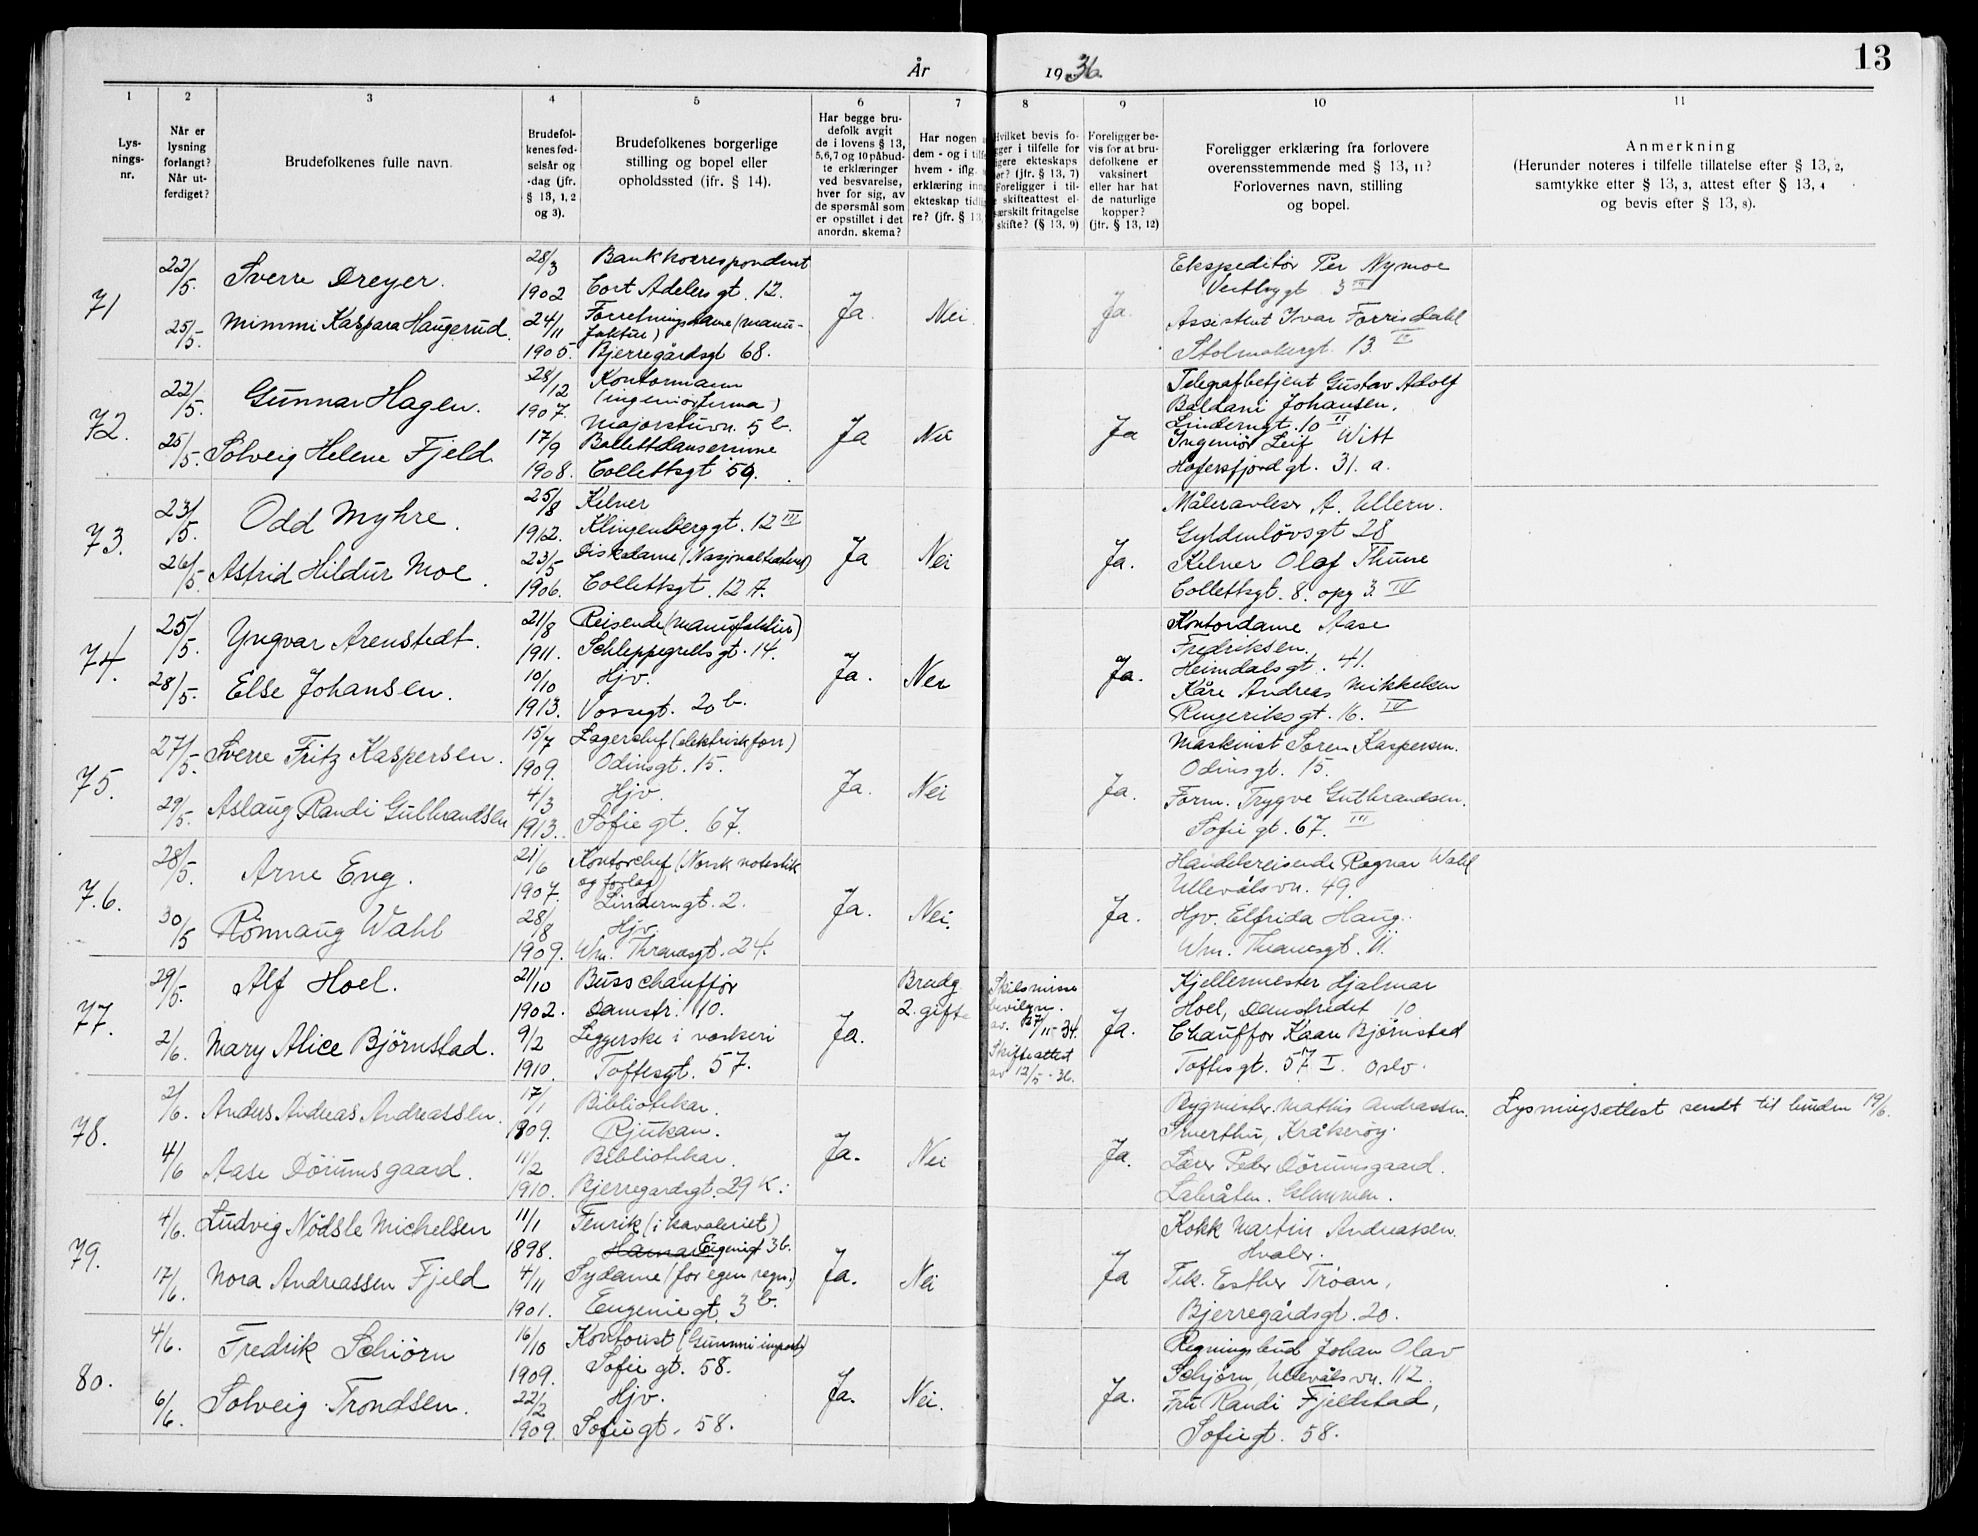 År 1936
13
1 2 3 4 5 6 7 8 9 10 11
Lys-
nings-
nr.
Når er
lysning
forlangt?
Når ut-
ferdiget?
Brudefolkenes fulle navn.
Brudefol-
kenes fød-
selsår og
-dag (jfr.
§ 13, 1, 2
og 3).
Brudefolkenes borgerlige
stilling og bopel eller
opholdssted (ifr. § 14).
Har begge bru-
defolk avgit
de i lovens § 13,
5,6,7 og 10 påbud-
te erklæringer
ved besvarelse,
hver for sig, av
de spørsmål som
er opstillet i det
anordn. skema?
Har nogen
dem - og i tilf
hvem - iflg.
erklæring inng
ekteskap tidlig
re? (jfr. § 13,
Hvilket bevis fo-
gger i tilfelle for
igere ekteskaps
ør? (jfr. § 13, 7)
Foreligger i til-
e skifteattest el-
særskilt fritagelse
skifte? (§ 13, 9)
Foreligger be-
vis for at bru-
defolkene er
vaksinert
eller har hat
de naturlige
kopper?
(jfr. § 13, 12)
Foreligger erklæring fra forlovere
overensstemmende med § 13, 11?
Forlovernes navn, stilling
og bopel.
Anmerkning
(Herunder noteres i tilfelle tillatelse efter § 13, 2,
samtykke efter § 13, 3, attest efter § 13, 4
og bevis efter § 13, 8).
71
22/5.
25/5.
Sverre Dreyer.
Mimmi Kaspara Haugerud.
28/3
1902
24/11
1905.
Bankkorrespondent
Cort Adelers gt. 12.
Forretningsdame (manu-
faktur)
Bjerregårdsgt 68.
Ja.
Nei.
Ja.
Ekspeditør Per Nymoe
Vestbygt 3 III
Assistent Ivar Forrisdahl
Stolmakergt. 13. IV
72.
22/5.
25/5.
Gunnar Hagen.
Solveig Helene Fjeld.
28/12
1907.
17/9
1908.
Kontormann
(ingeniørfirma)
Majorstuvn. 5 b.
Ballettdanserinne
Collettsgt 59.
Ja
Nei
Ja
Telegrafbetjent Gustav Adolf
Baldani Johansen,
Linderngt. 10 II
Ingeniør Leif Witt
Hafersfjordgt. 31. a.
73.
23/5.
26/5.
Odd Myhre.
Astrid Hildur Moe.
25/8
1912.
23/5
1906.
Kelner
Klingenberggt. 12 III
Diskdame (Nasjonalteatret)
Collettsgt. 12 A.
Ja
Nei
Ja.
Måleravleser A. Ullern.
Gyldenløvsgt 28
Kelner Olaf Thune
Collettsgt. 8. opg 3. IV
74.
25/5.
28/5.
Yngvar Arenstedt.
Else Johansen.
21/8
1911.
10/10
1913.
Reisende (manufaktur)
Schleppegrells gt. 14.
Hjv.
Vossegt. 20 b.
Ja.
Nei
Ja.
Kontordame Aase
Fredriksen.
Heimdalsgt. 41.
Kåre Andreas Mikkelsen
Ringeriksgt. 16. IV
75.
27/5.
29/5.
Sverre Fritz Kaspersen.
Aslaug Randi Gulbrandsen
15/7
1909.
4/3
1913.
Lagerchef (elektrisk forr)
Odinsgt. 15.
Hjv.
Sofie gt. 67.
Ja.
Nei
Ja.
Maskinist Søren Kaspersen.
Odinsgt. 15.
Form. Trygve Gulbrandsen.
Sofie gt. 67. III
76.
28/5.
30/5
Arne Eng.
Rønnaug Wahl
21/6
1907.
28/8
1909.
Kontorchef (Norsk notestikk
og forlag)
Linderngt. 2.
Hjv.
Wm. Thranesgt. 24.
Ja.
Nei.
Ja.
Handelsreisende Ragnar Wahl
Ullevålsvn. 49.
Hjv. Elfrida Haug.
Wm. Thranesgt. 11.
77.
29/5.
2/6.
Alf Hoel.
Mary Alice Bjørnstad.
21/10
1902.
9/2
1910.
Busschauffør
Damstr. 10.
Leggerske i vaskeri
Toftesgt. 57.
Ja.
Brudg
2. gifte
Skilsmisse
bevilgn.
av. 27/11-34.
Skifteattest
av 12/5-36.
Ja.
Kjellermester Hjalmar
Hoel, Damstredet 10
Chauffør Kaare Bjørnstad
Toftesgt. 57 I. Oslo.
78.
2/6.
4/6
Anders Andreas Andreassen.
Aase Dörumsgaard.
17/1
1909.
11/2
1910.
Bibliotekar.
Rjukan.
Bibliotekar.
Bjerregardsgt. 29 K.
Ja.
Nei
Ja.
Bygmester Mathis Andreassen.
Smerthu, Kråkerøy.
Lærer Peder Dörumsgaard.
Labråten. Glemmen.
Lysningsattest sendt til bruden 19/6.
79.
4/6.
17/6.
Ludvig Nödsle Michelsen
Nora Andreassen Fjeld
11/1
1898.
4/11
1901.
Fenrik (i kavaleriet)
Hamar Eugenigt 3b.
Sydame (for egen regn.)
Eugenie gt. 3 b.
Ja.
Nei
Ja
Kokk Martin Andreassen
Hvaler.
Frk. Esther Trøan,
Bjerregårdsgt. 20.
80.
4/6.
6/6.
Fredrik Schiörn
Solveig Trondsen.
16/10
1909.
22/2
1909.
Kontorist (Gummi import)
Sofie gt. 58.
Hjv.
Sofiegt. 58.
Ja.
Nei.
Ja.
Regningsbud Johan Olav
Schjörn, Ullevålsvn. 112.
Fru Randi Fjeldstad,
Sofiegt. 58.